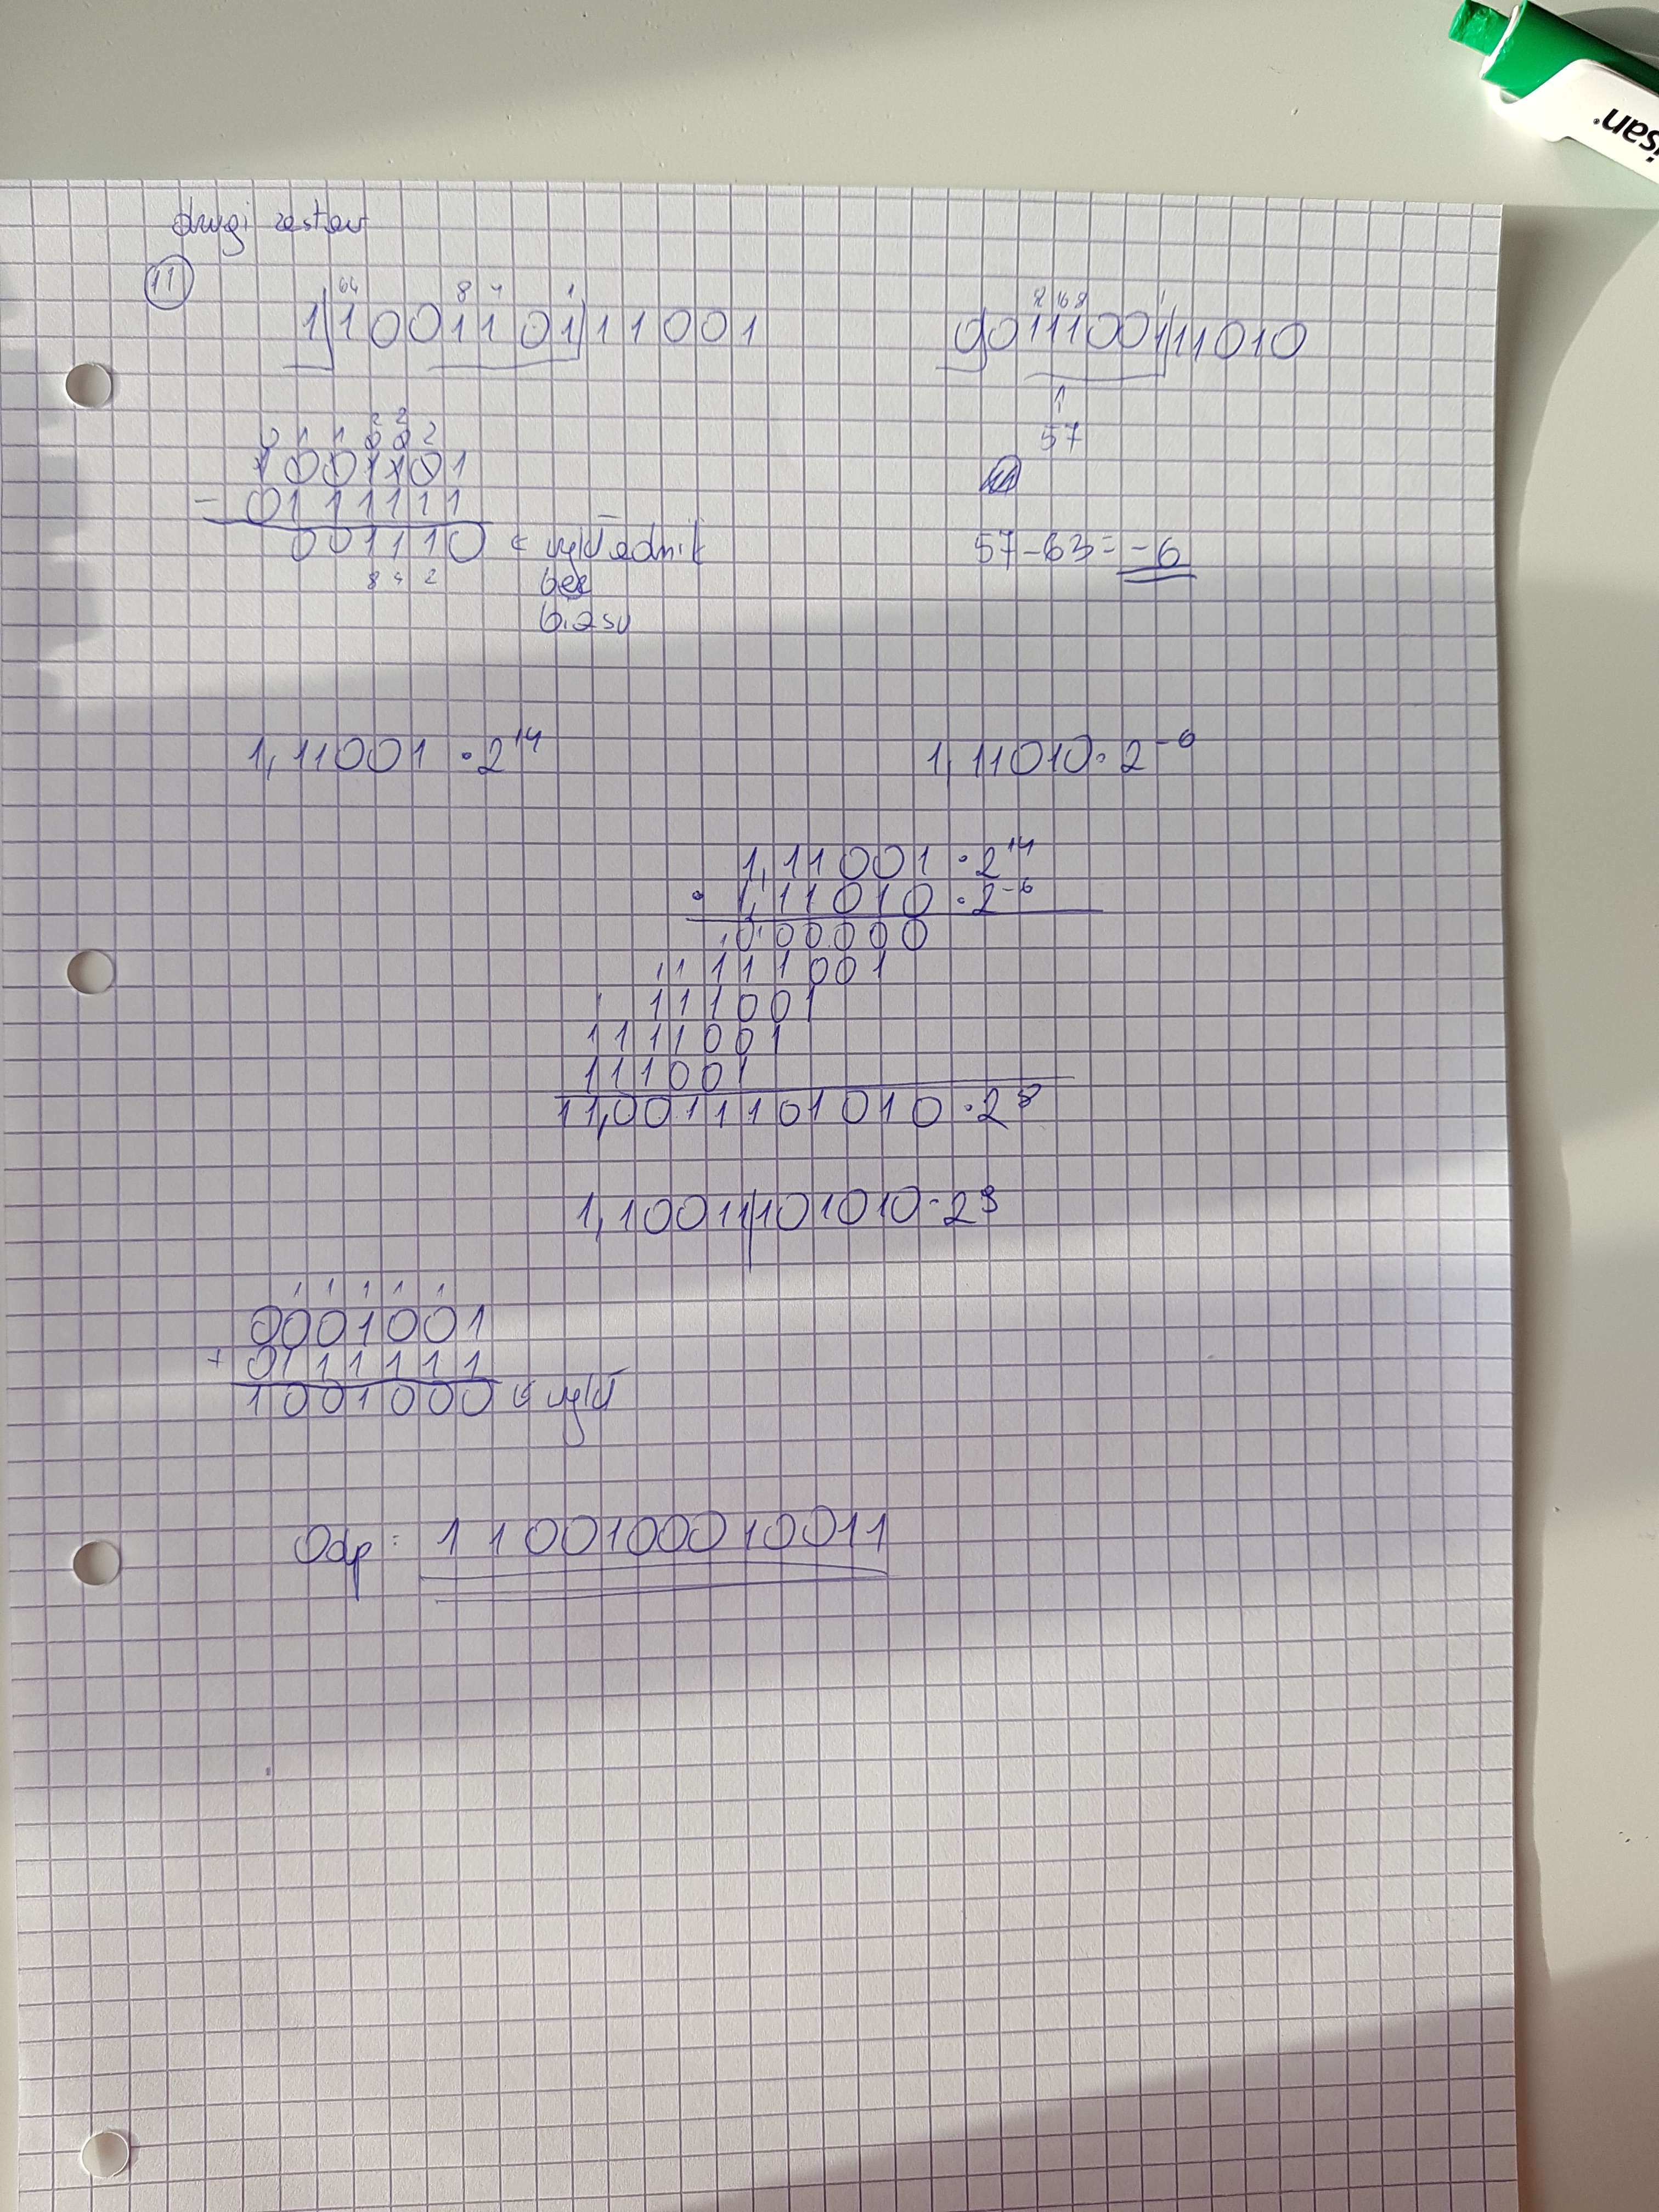 drugi zestaw
11
64 8 4 1
1 1001101 11001
32 16 8 1
0 0111001 11010
57
0 1 1 2 2
0 0 2
1001101
- 0111111
001110 ← wykładnik
8 4 2 bez
biasu
57-63= -6
1,11001 · 2^14
1,11010 · 2^-6
1,11001 · 2^14
· 1,11010 · 2^-6
000000
111001
111001
1111001
111001
11,0011101010 · 2^8
1,10011|101010 · 2^9
1 1 1 1 1
0001001
+ 0111111
1001000 ← wykł
Odp: 1100100010011
isan